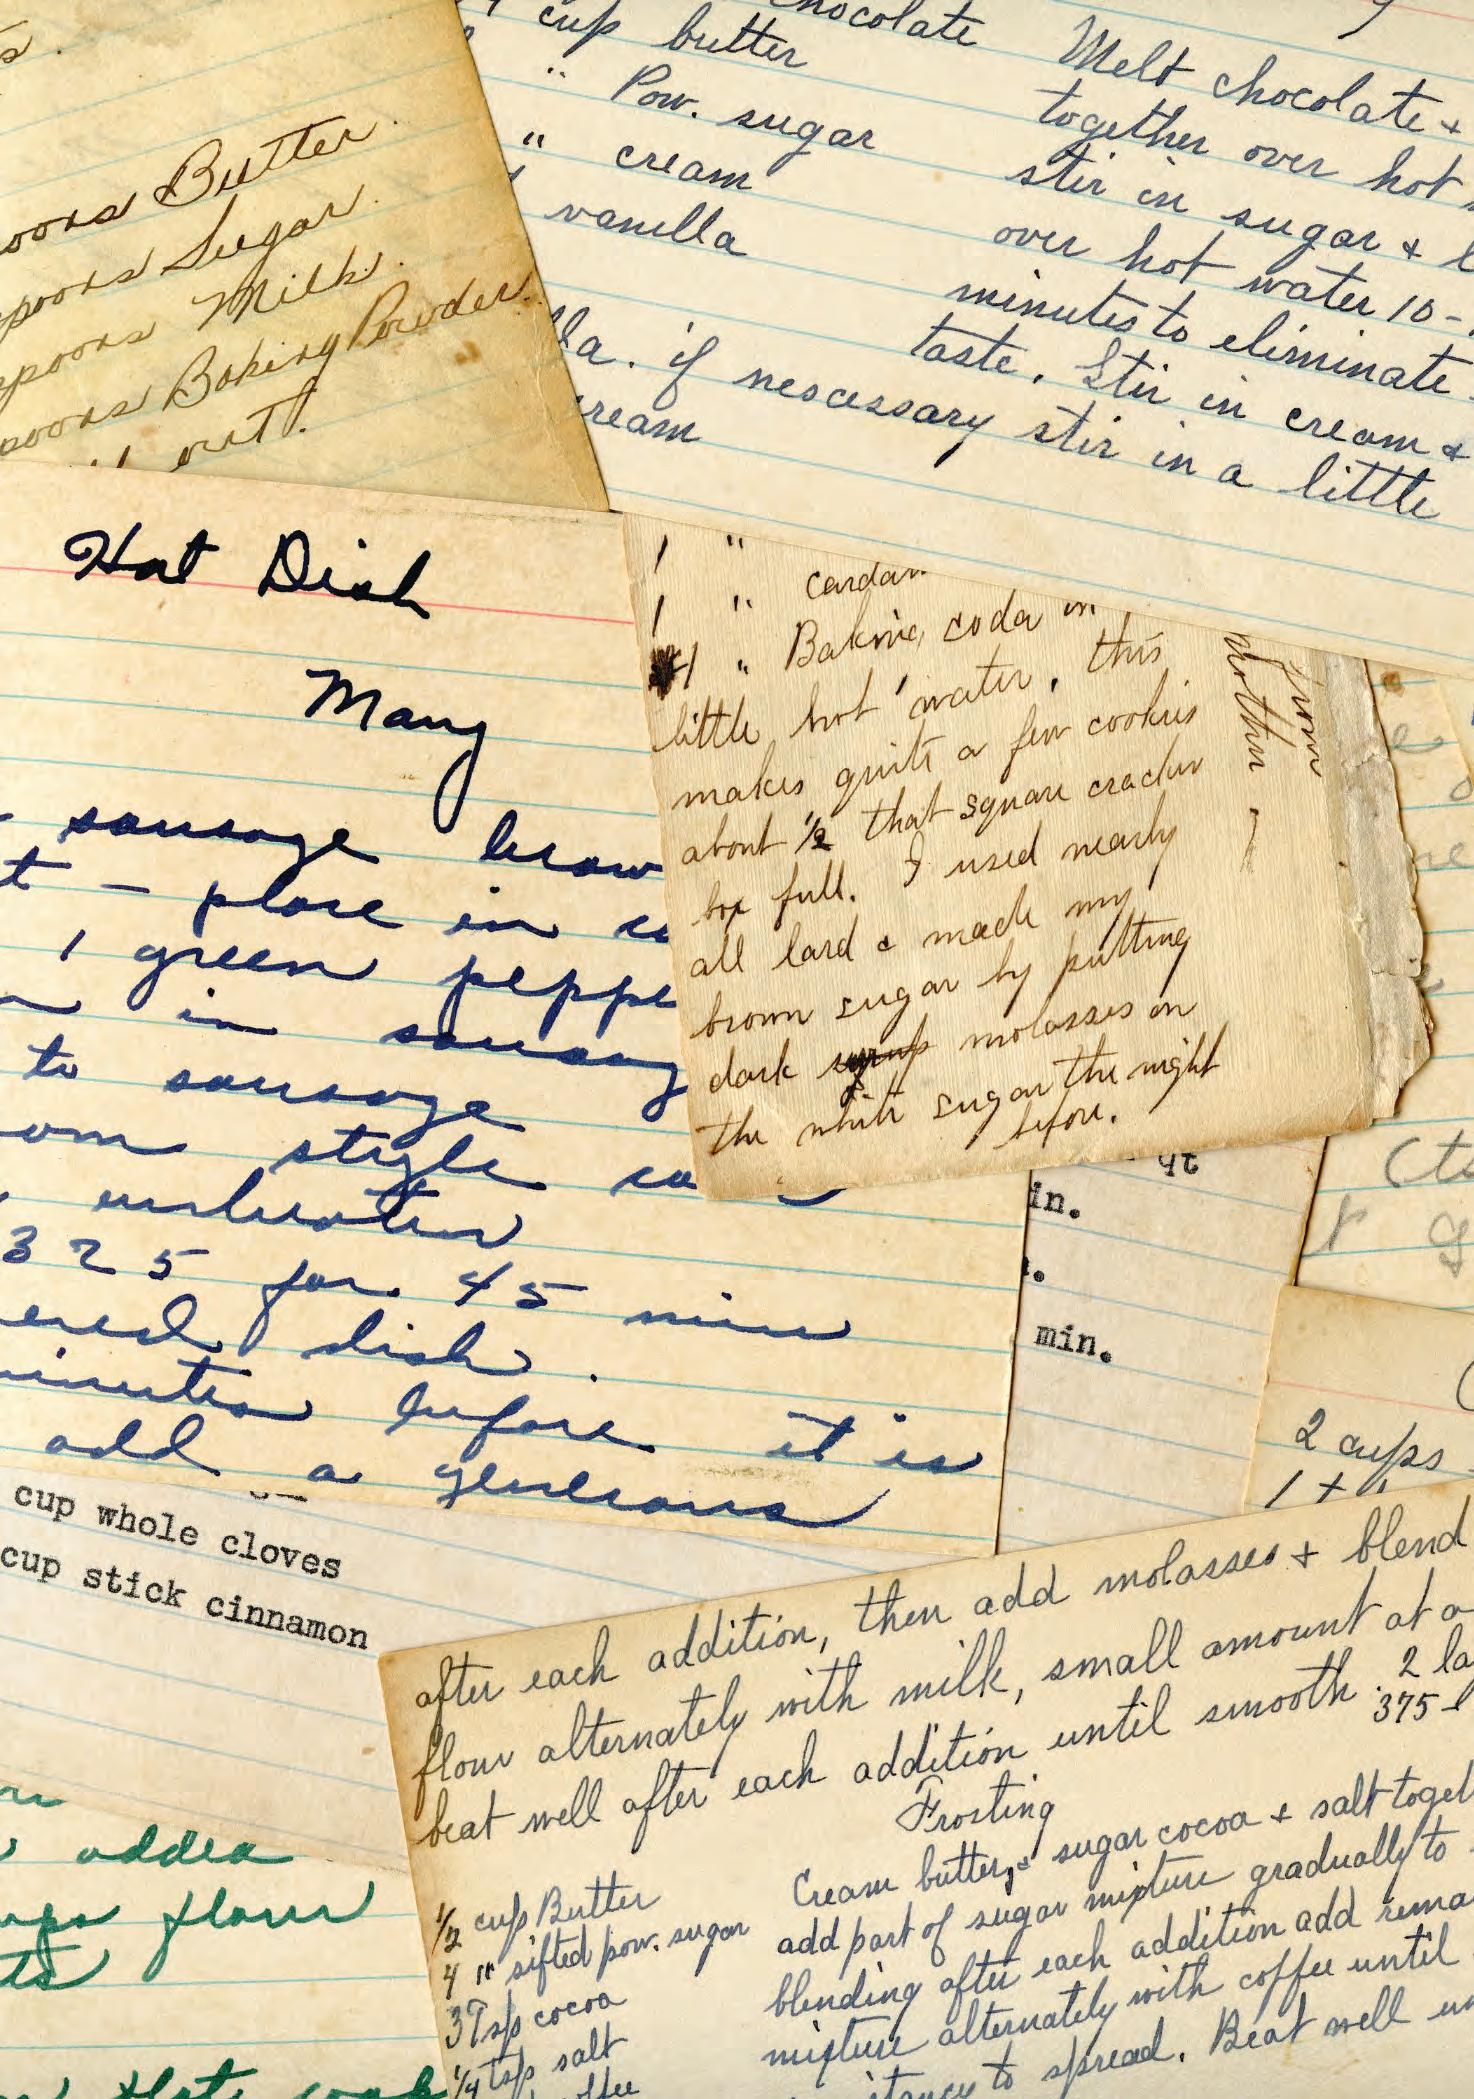 Butter.
Sugar.
Milk.
Baking Powder.
chocolate
cup butter
" Pow. sugar
" cream
vanilla
Melt chocolate +
together over hot
stir in sugar +
over hot water 10-
minutes to eliminate
taste. Stir in cream +
if nescessary stir in a little
Hot Dish
Mary
sausage brow
place in
1 green peppe
in sausag
to sausage
style
325 for 45 min
dish.
before it is
add a generous
1 "
1 " Cardam
1 " Baking soda in
little hot water, this
makes quite a few cookies
about 1/2 that square cracker
box full. I used nearly
all lard & made my
brown sugar by putting
dark syrup molasses on
the white sugar the night
before.
from
mother
qt
in.
min.
2 cups
cup whole cloves
cup stick cinnamon
after each addition, then add molasses + blend
flour alternately with milk, small amount at a
beat well after each addition until smooth. 2 la
375
Frosting
1/2 cup Butter
4 " sifted pow. sugar
3 Tsp cocoa
1/4 tsp salt
Cream butter, + sugar cocoa + salt toget
add part of sugar mixture gradually to
blending after each addition add rema
mixture alternately with coffee until
to spread. Beat well un
added
flour